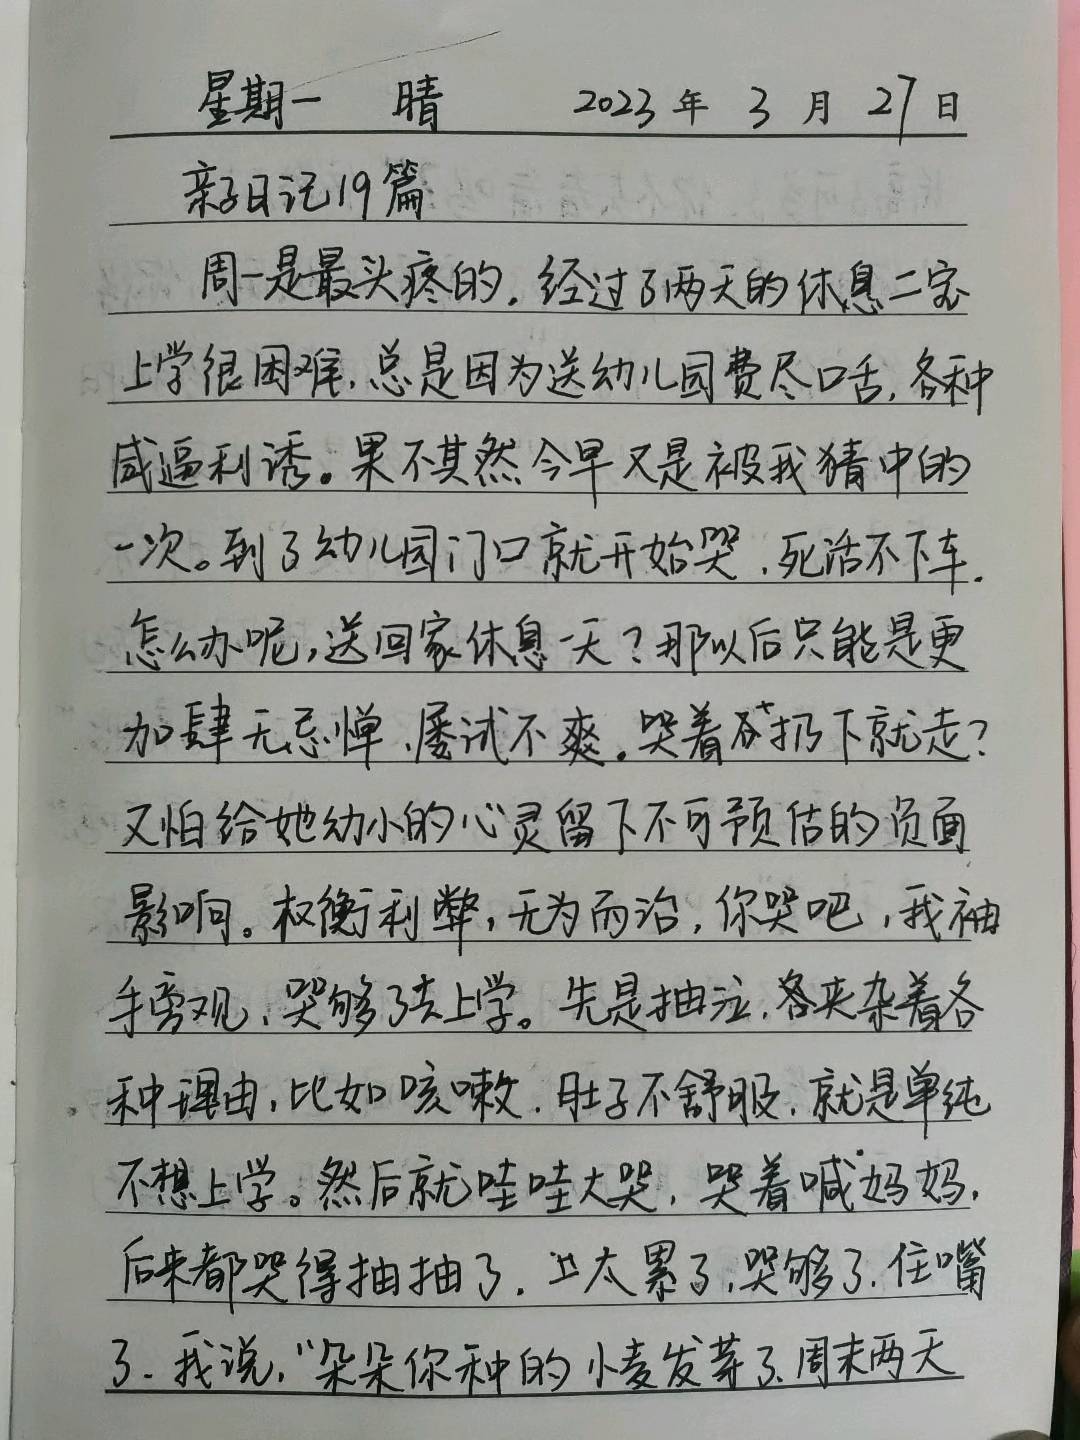 星期一 晴 2023年3月27日
亲子日记19篇
周一是最头疼的，经过了两天的休息二宝
上学很困难，总是因为送幼儿园费尽口舌，各种
威逼利诱。果不其然今早又是被我猜中的
一次。到了幼儿园门口就开始哭，死活不下车。
怎么办呢，送回家休息一天？那以后只能是更
加肆无忌惮、屡试不爽。哭着扔下就走？
又怕给她幼小的心灵留下不可预估的负面
影响。权衡利弊，无为而治，你哭吧，我袖
手旁观，哭够了去上学。先是抽泣，夹杂着各
种理由，比如咳嗽，肚子不舒服，就是单纯
不想上学。然后就哇哇大哭，哭着喊妈妈，
后来都哭得抽抽了。太累了，哭够了，住嘴
了。我说，“朵朵你种的小麦发芽了，周末两天